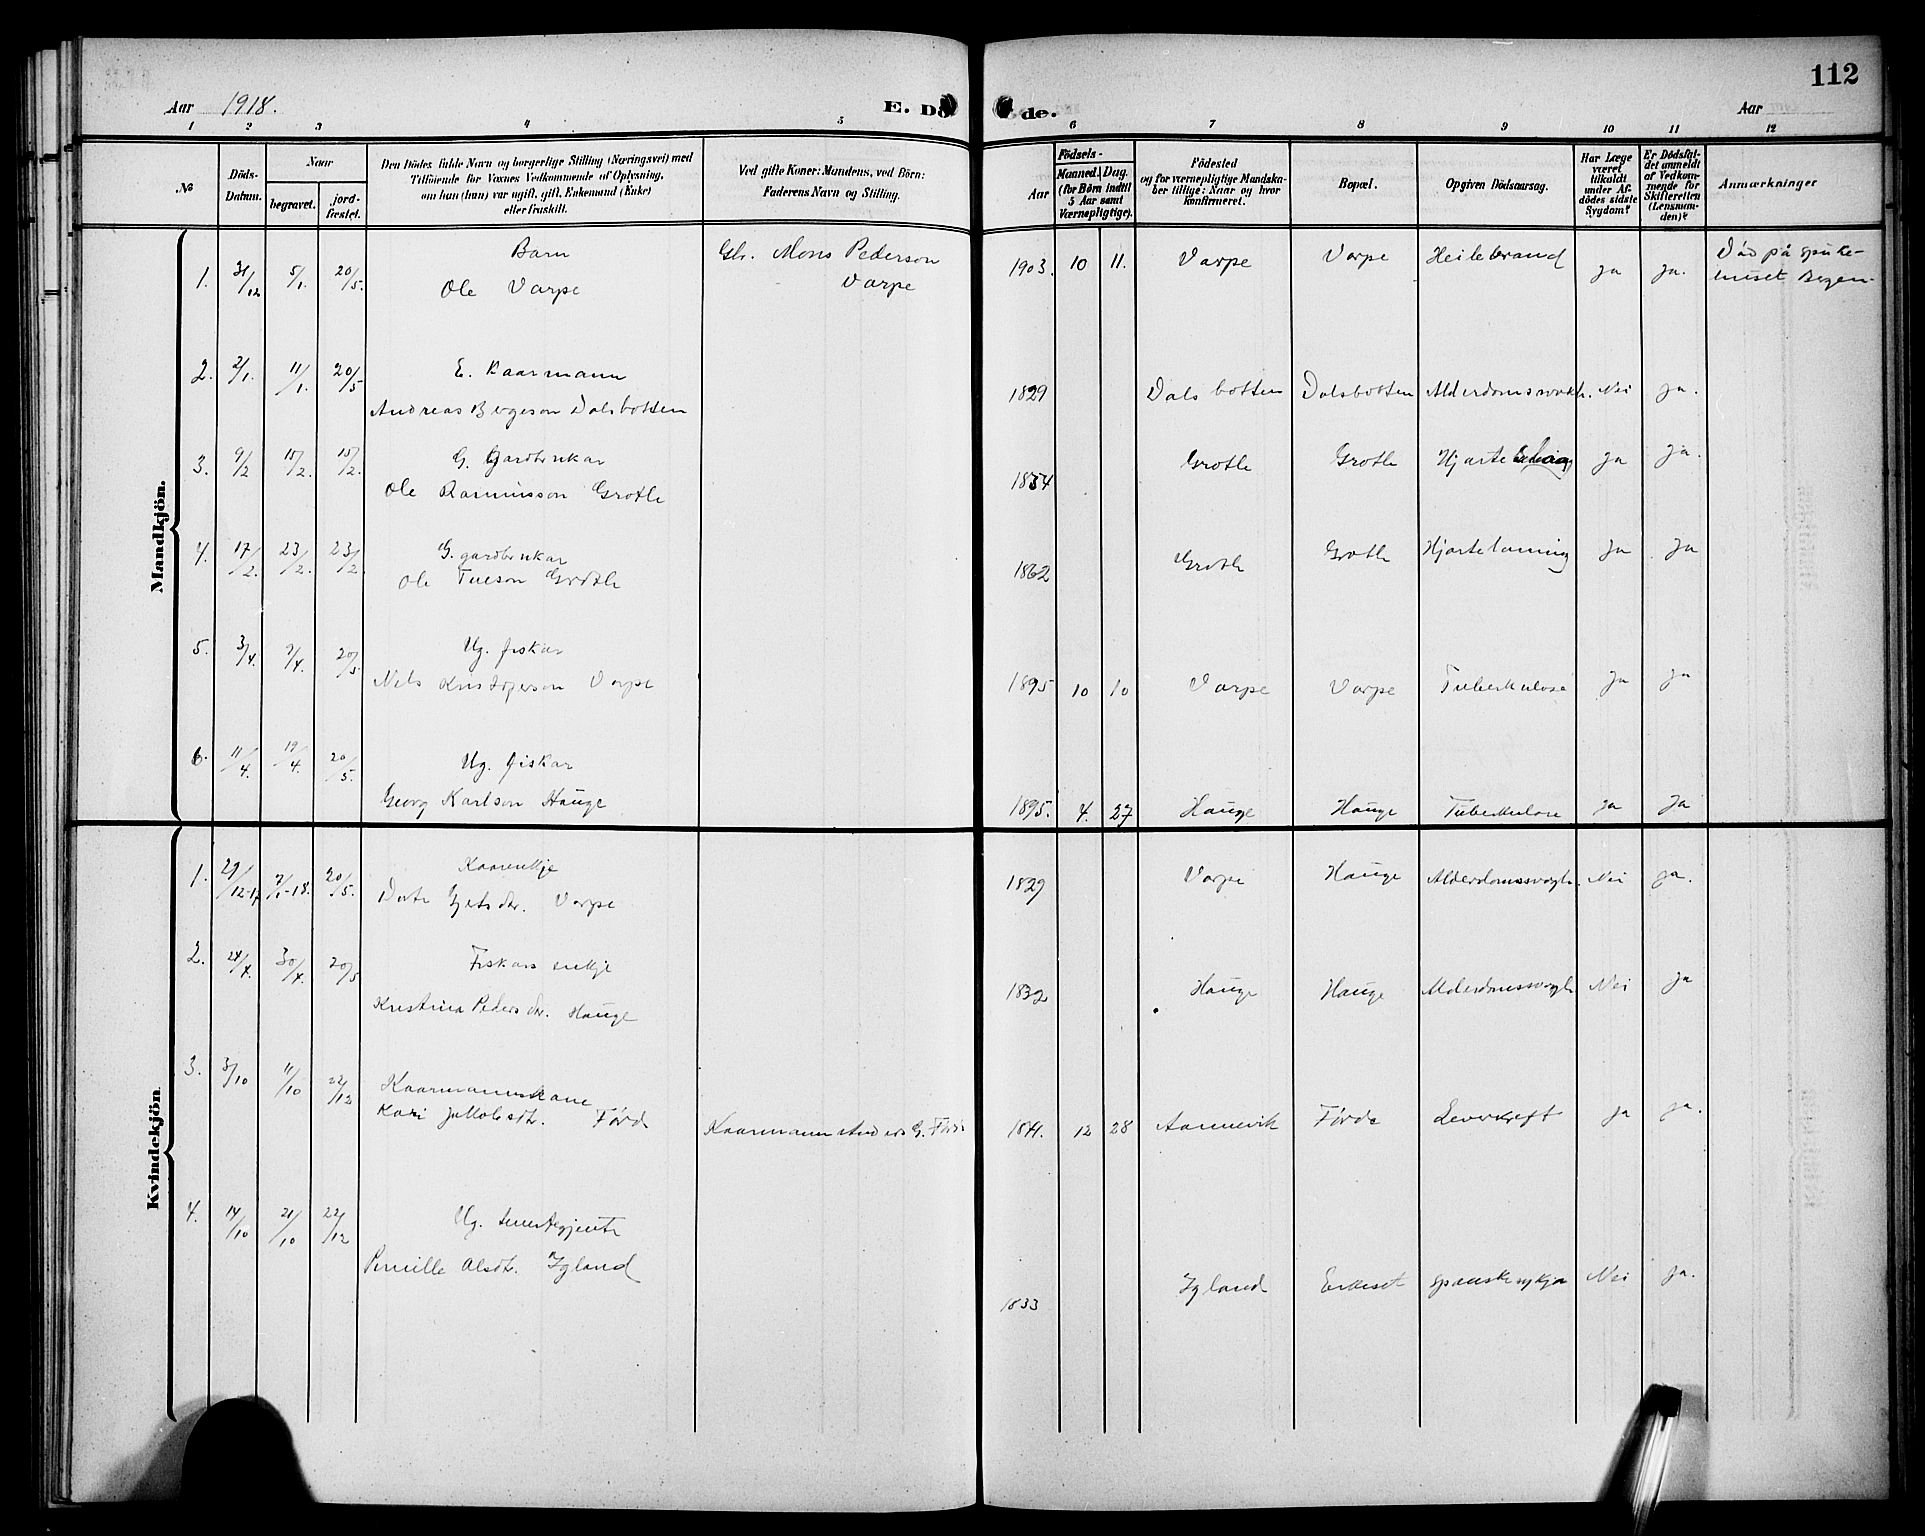 112
Aar 1918.
E. Dö
de.
Aar
1 2 3 4 5 6 7 8 9 10 11 12
No
Döds-
Datum.
Naar
begravet.
jord-
fæstet.
Den Dödes fulde Navn og borgerlige Stilling (Næringsvei) med
Tilföiende for Voxnes Vedkommende af Oplysning,
om han (hun) var ugift, gift, Enkemand (Enke)
eller fraskilt.
Ved gifte Koner: Mandens, ved Börn:
Faderens Navn og Stilling.
Födsels-
Aar
Maaned. Dag.
(for Börn indtil
5 Aar samt
Værnepligtige).
Födested
og for værnepligtige Mandska-
ber tillige: Naar og hvor
konfirmeret.
Bopæl.
Opgiven Dödsaarsag.
Har Læge
været
tilkaldt
under Af-
dödes sidste
Sygdom?
Er Dödsfal-
det anmeldt
af Vedkom-
mende for
Skifteretten
(Lensman-
den)?
Anmærkninger
Mandkjön.
Barn Gbr. Mons Pederson Død på sjuke-
1. 31/12 5/1. 20/5. Ole Varpe Varpe 1903. 10 11. Varpe Varpe Heilebrand ja ja. huset Bergen.
E. Kaarmann
2. 2/1. 11/1. 20/5 Andreas Dalsbotten 1829 Dalsbotten Dalsbotten Nei ja.
G. Gardbrukar
3. 9/2 15/2. 15/2. Ole Rasmusson Grotle 1854 Grotle Grotle ja ja.
G. gardbrukar
4. 17/2. 23/2. 23/2. Ole Grotle 1862 Grotle Grotle Hjartelaming ja ja
Ug. fiskar
5. 3/4. 9/4. 20/5 Nils Varpe 1895 10 10 Varpe Varpe Tuberkulose ja ja
Ug. fiskar
6. 11/4. 19/4. 20/5. Georg Karlson Hauge 1895. 4. 27 Hauge Hauge Tuberkulose ja ja
Kvindekjön
Kaarenkje
1. 29/12-17 20/5. Varpe 1829 Varpe Hauge Alderdomssvagh. Nei ja.
Fiskars enkje
2. 24/4. 30/4. 20/5 Kristina Pedersdtr. Hauge 1832 Hauge Hauge Alderdomssvagh Nei ja
Kaarmannskane
3. 3/10 11/10 22/12 Kari Førd Kaarmann Anders G. Førde 12 28 Aannevik Førde Leverkreft ja ja.
Ug. tenestegjente
4. 14/10 21/10 22/12 Pernille Olsdtr. Igland 1833 Igland Endeset spanskesykja Nei ja.